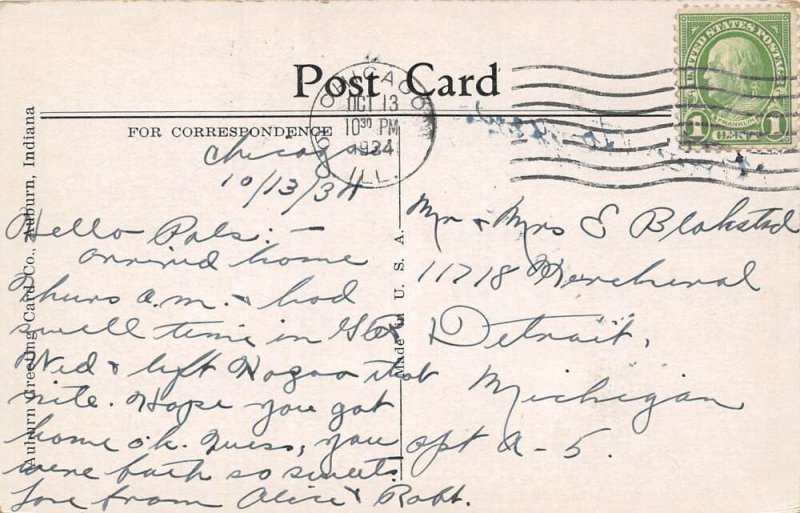 UNITED STATES POSTAGE
FRANKLIN
1 CENT 1
Post Card
CHICAGO
OCT 13
10 30 PM
1934
ILL.
FOR CORRESPONDENCE
Auburn Greeting Card Co., Auburn, Indiana
Made in U. S. A.
Chicago
10/13/34
Hello Pals: –
arrived home
Thurs a.m. & had
swell time in
Wed & left that
nite. Hope you got
home o.k. Guess, you
were both so sweet.
Love from Alice & Robt.
Mr & Mrs E Blakstad
11718 Kercheval
Detroit,
Michigan
apt A-5.